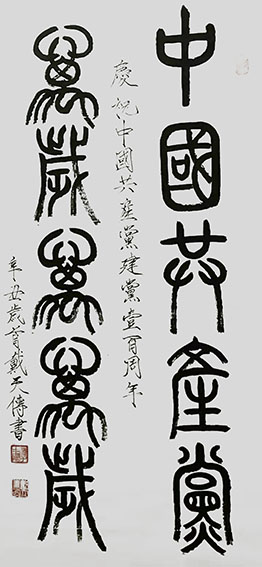 中國共產黨
慶祝中國共產黨建黨壹百周年
萬歲萬萬歲
辛丑歲首戴天傳書